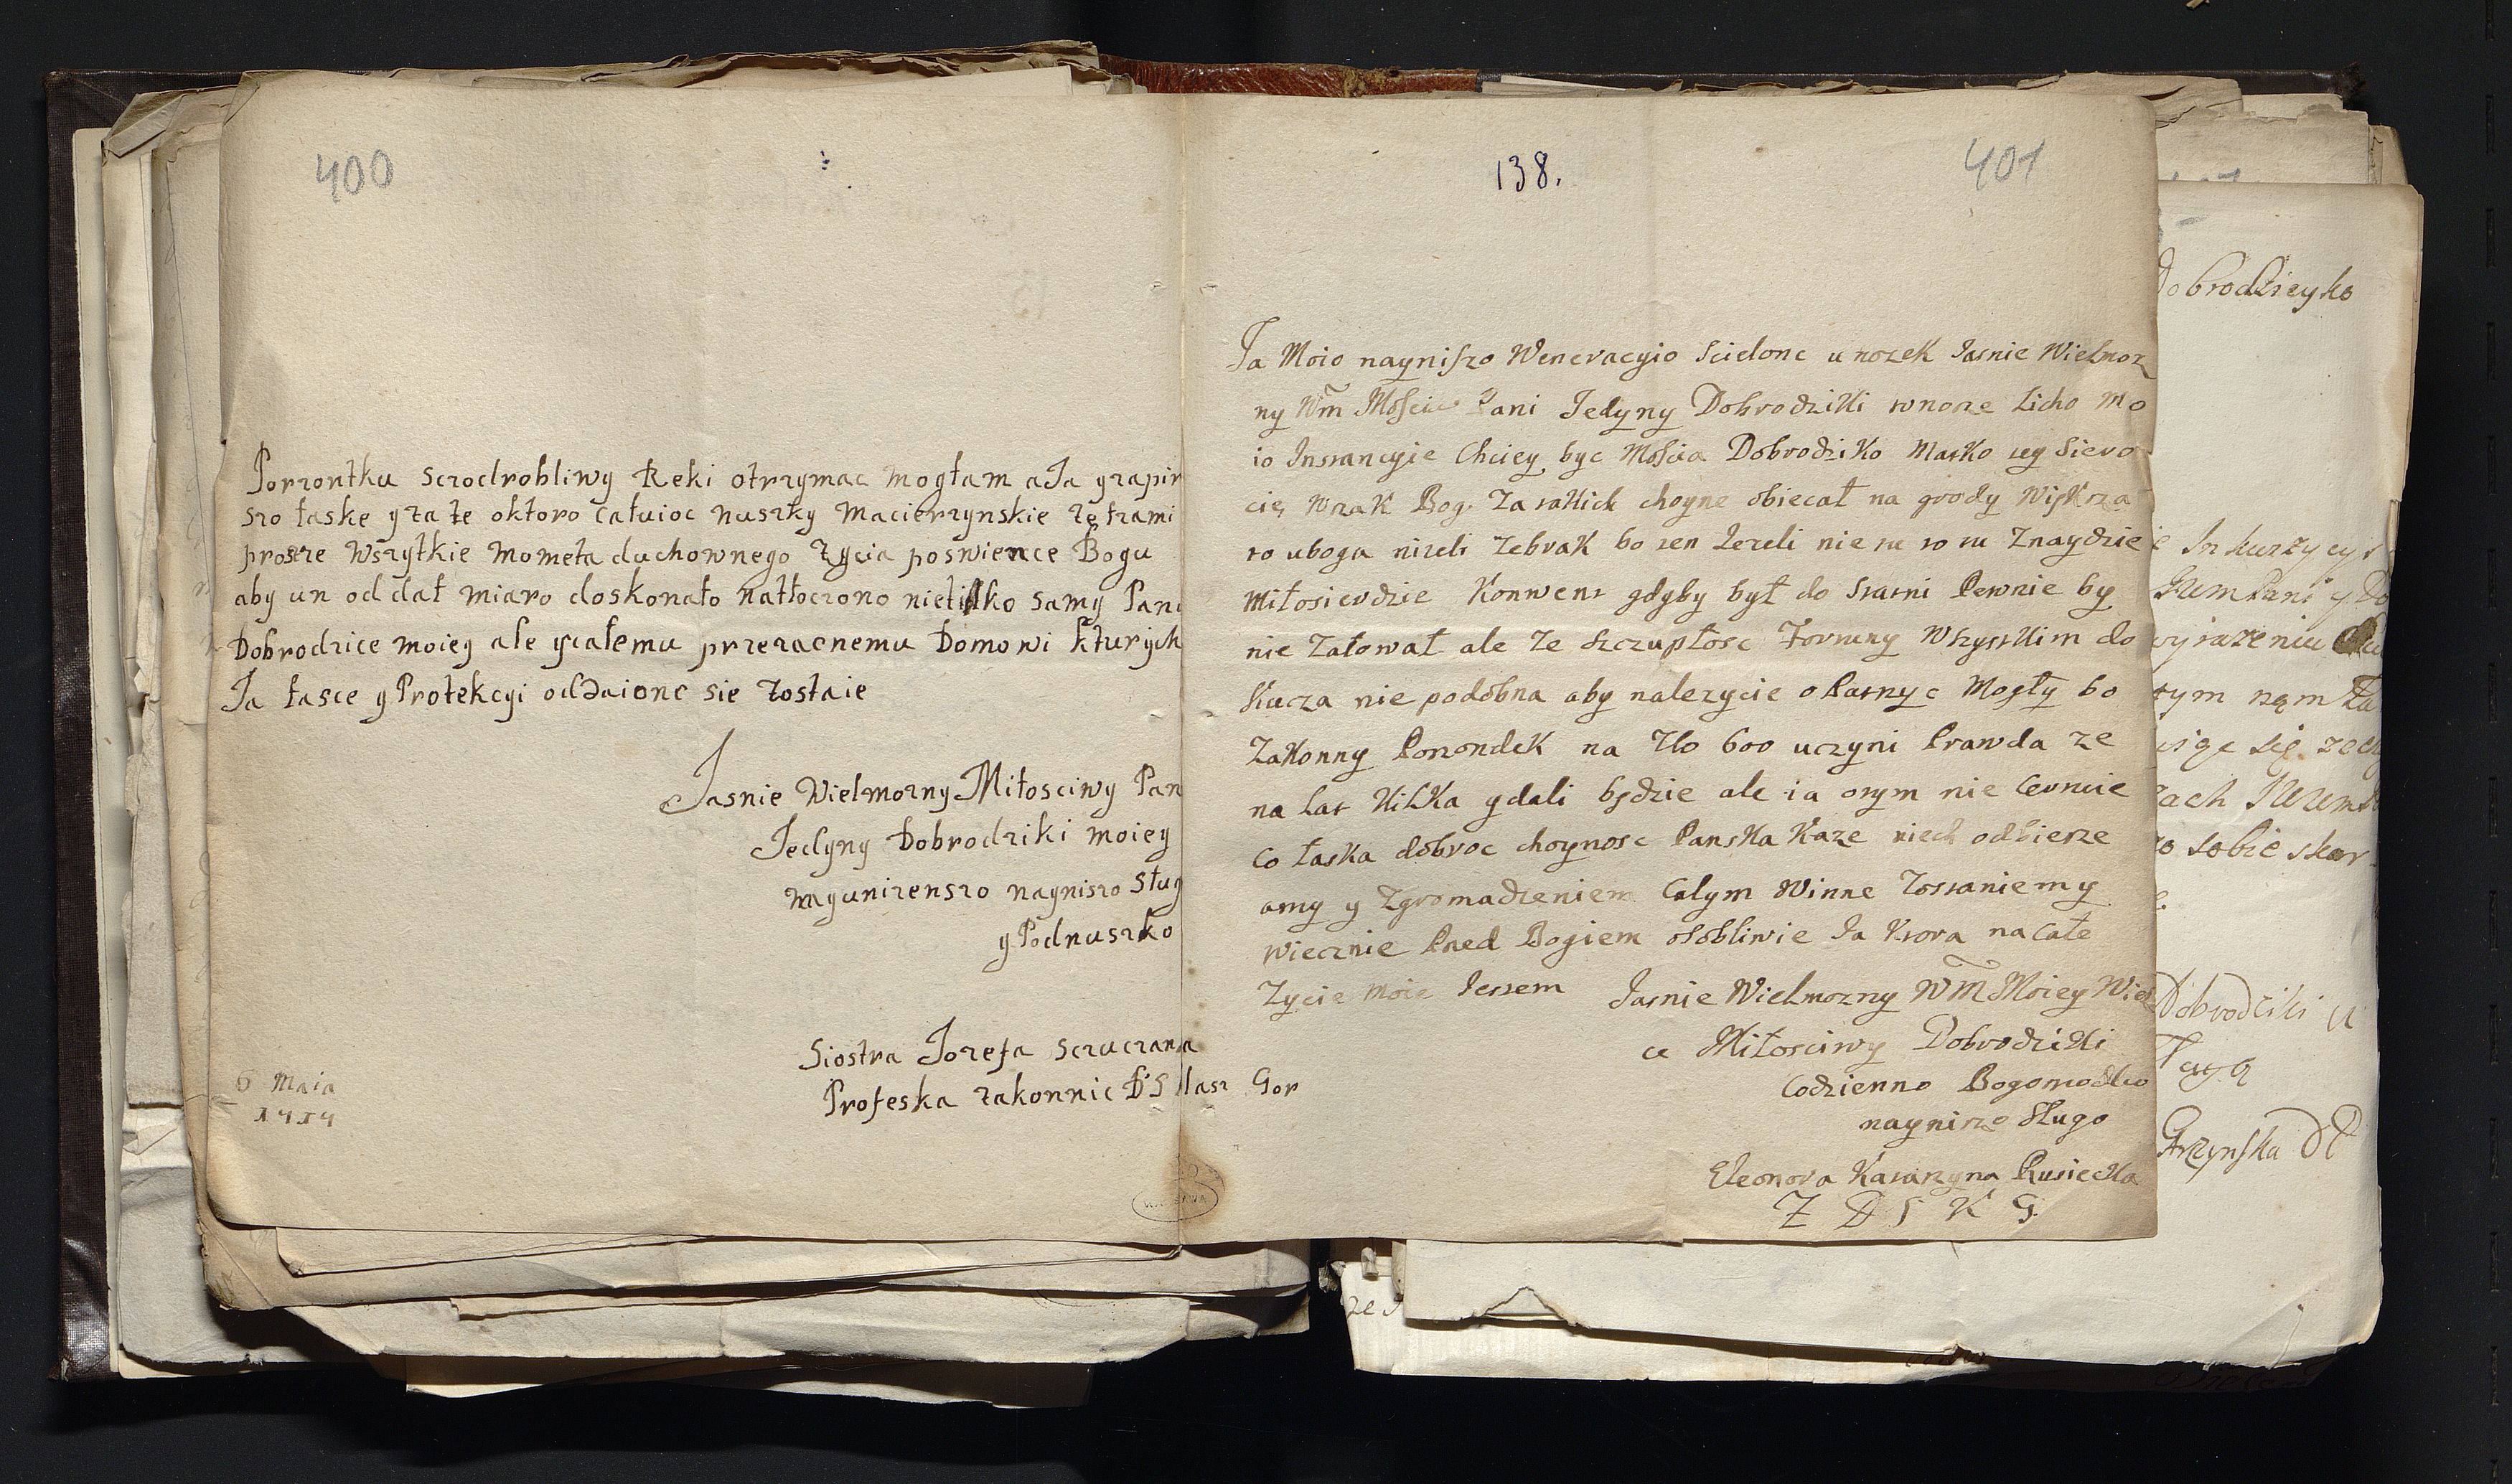 400
Porzontku sczodrobliwy Reki otrzymac mogłam a Ja y zapir
szo łaske y za te oktoro całuioc nuszky macierzynskie zę łzami
prosze wszytkie mometa duchownego zycia poswience Bogu
aby un oddał miaro doskonało natłoczono nietilko samy Pani
Dobrodzice moiey ale y całemu przezacnemu Domowi kturych
Ja łasce y Protekcyi oddaionc sie zostaie
Jasnie Wielmozny Miłosciwy Pan
Jedyny Dobrodziki moiey
nayunizenszo nayniszo Sług
y Podnuszko
Siostra Jozefa Sczuczanka
Profeska zakonnic D S Klasz Gor
6 Maia
1414
138.
401
Ja Moio nayniszo Weneracyio Scielonc u nozek Jasnie Wielmoz
ny Wm Mościw Pani Jedyny Dobrodziki wnosze licho mo
io Instancyie Chciey byc Mościa Dobrodziko Matko tey Siero
cię wzak Bog za takich choyne obiecał na grody
to uboga nizeli zebrak bo ten Jezeli nie tu to tu Znaydzie
Miłosierdzie Konwent gdyby był do Statni Pewnie by
nie załował ale ze szczupłosc Fortuny Wszystkim do
kucza nie podobna aby nalezycie opatrzyc Mogły bo
Zakonny Porzondek na Zło 600 uczyni Prawda ze
na lat kilka y dali będzie ale ia otym nie
Co łaska dobroc choynosc Panska kaze niech odbierze
amy y Zgromadzeniem Całym Winne Zostaniemy
wiecznie Pned Bogiem osobliwie Ja Ktora na całe
Zycie moie Jestem Jasnie Wielmozny Wm Moiey Wiel
ce Miłosciwy Dobrodziki
Codzienno Bogomodlco
nayniszo Sługo
Eleonora Katarzyna Rusiecka
Z D S K G
Dobrodzieyko
Inkurzycyi
wyrazeniu
tym nam
sobie skar
Dobrodziki u